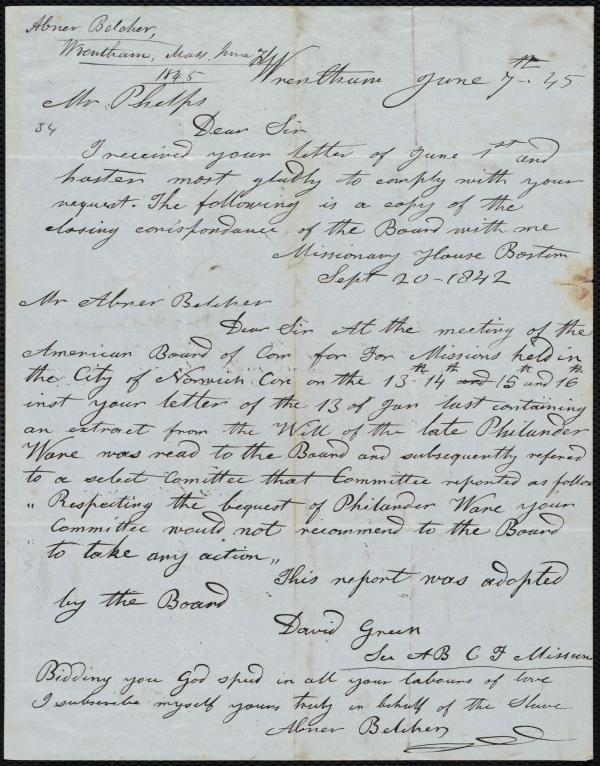 Abner Belcher,
Wrentham, Mass. June 7,
1845
Wrentham June 7th - 45
Mr Phelps
54
Dear Sir
I received your letter of June 1st and
hasten most gladly to comply with your
request. The following is a copy of the
closing corispondance of the Board with me
Missionary House Boston
Sept 20 - 1842
Mr Abner Belcher
Dear Sir At the meeting of the
American Board of Com for For Missions held in
the City of Norwich Con on the 13th 14th and 15th and 16th
inst your letter of the 13 of Jan last containing
an extract from the Will of the late Philander
Ware was read to the Board and subsequently refered
to a select Comittee that Committee reported as follow
„ Respecting the bequest of Philander Ware your
Committee would not recommend to the Board
to take any action „
This report was adopted
by the Board
David Green
Sec A B C F Missions
Bidding you God speed in all your labours of love
I subscribe myself yours truly in behalf of the Slave
Abner Belcher